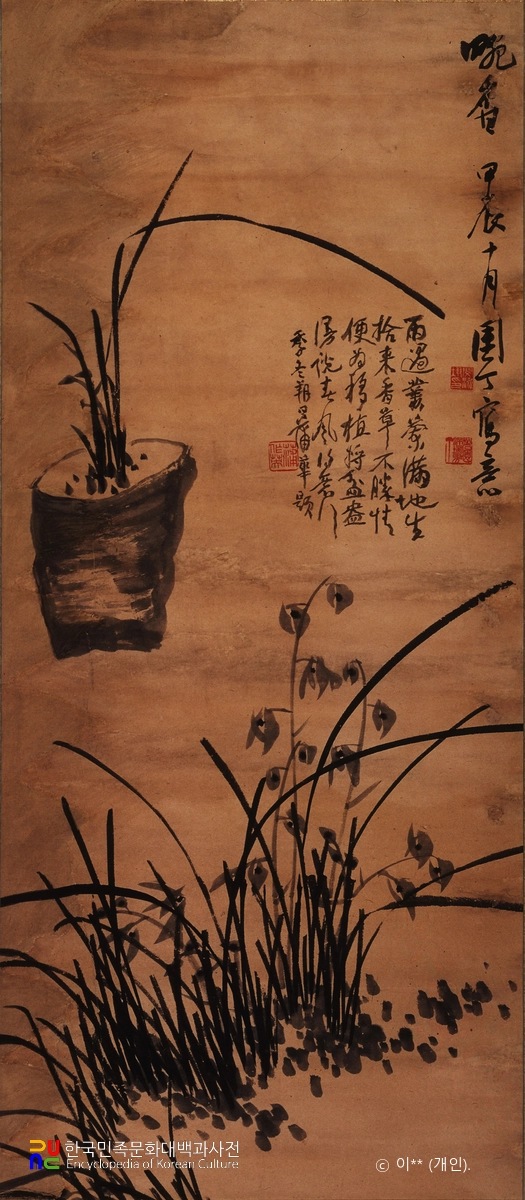 畹香 甲辰十月園丁寫意
雨過叢滿地生
拾來香草不勝情
便為移植將盆盎
漫說春風
季冬朔日蒲華題
한국민족문화대백과사전
Encyclopedia of Korean Culture
© 이** (개인).